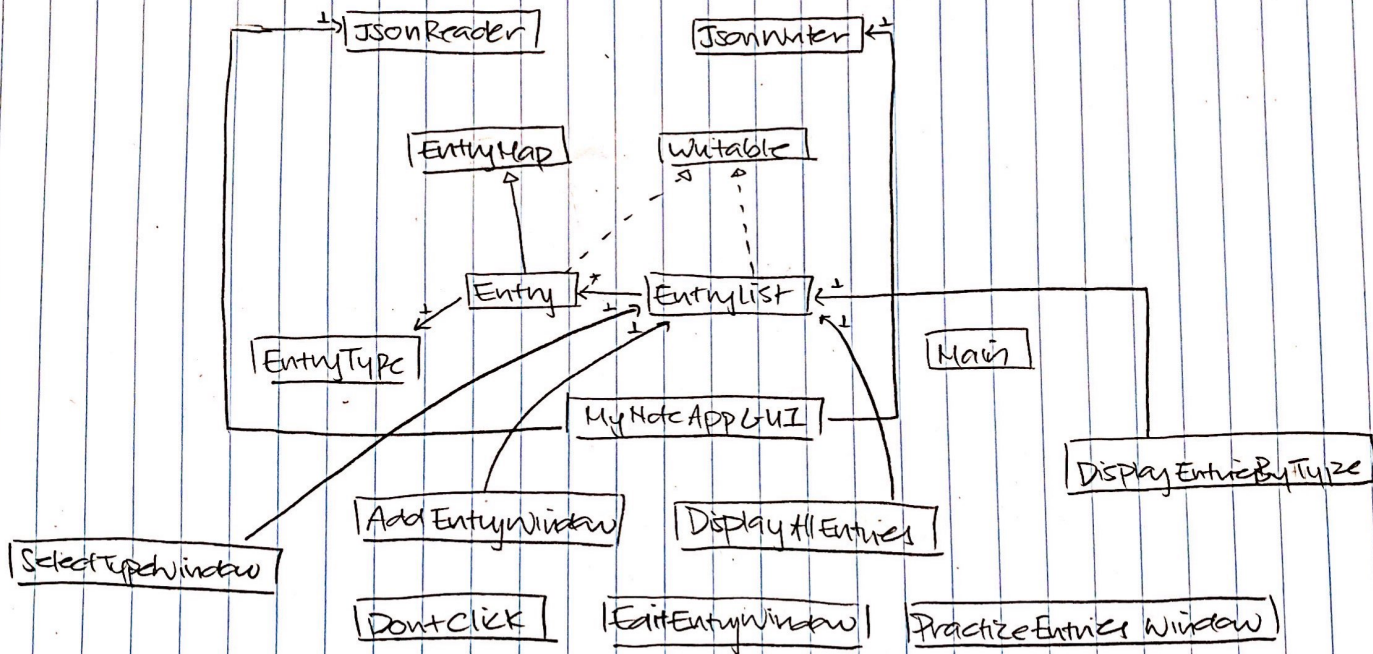 1 JsonReader
JsonWriter 1
EntryMap
Writable
Entry
*
EntryList
1
1
1
1
1
EntryType
Main
MyNoteAppGUI
DisplayEntriesByType
AddEntryWindow
DisplayAllEntries
SelectTypeWindow
DontClick
EditEntryWindow
PractizeEntries Window